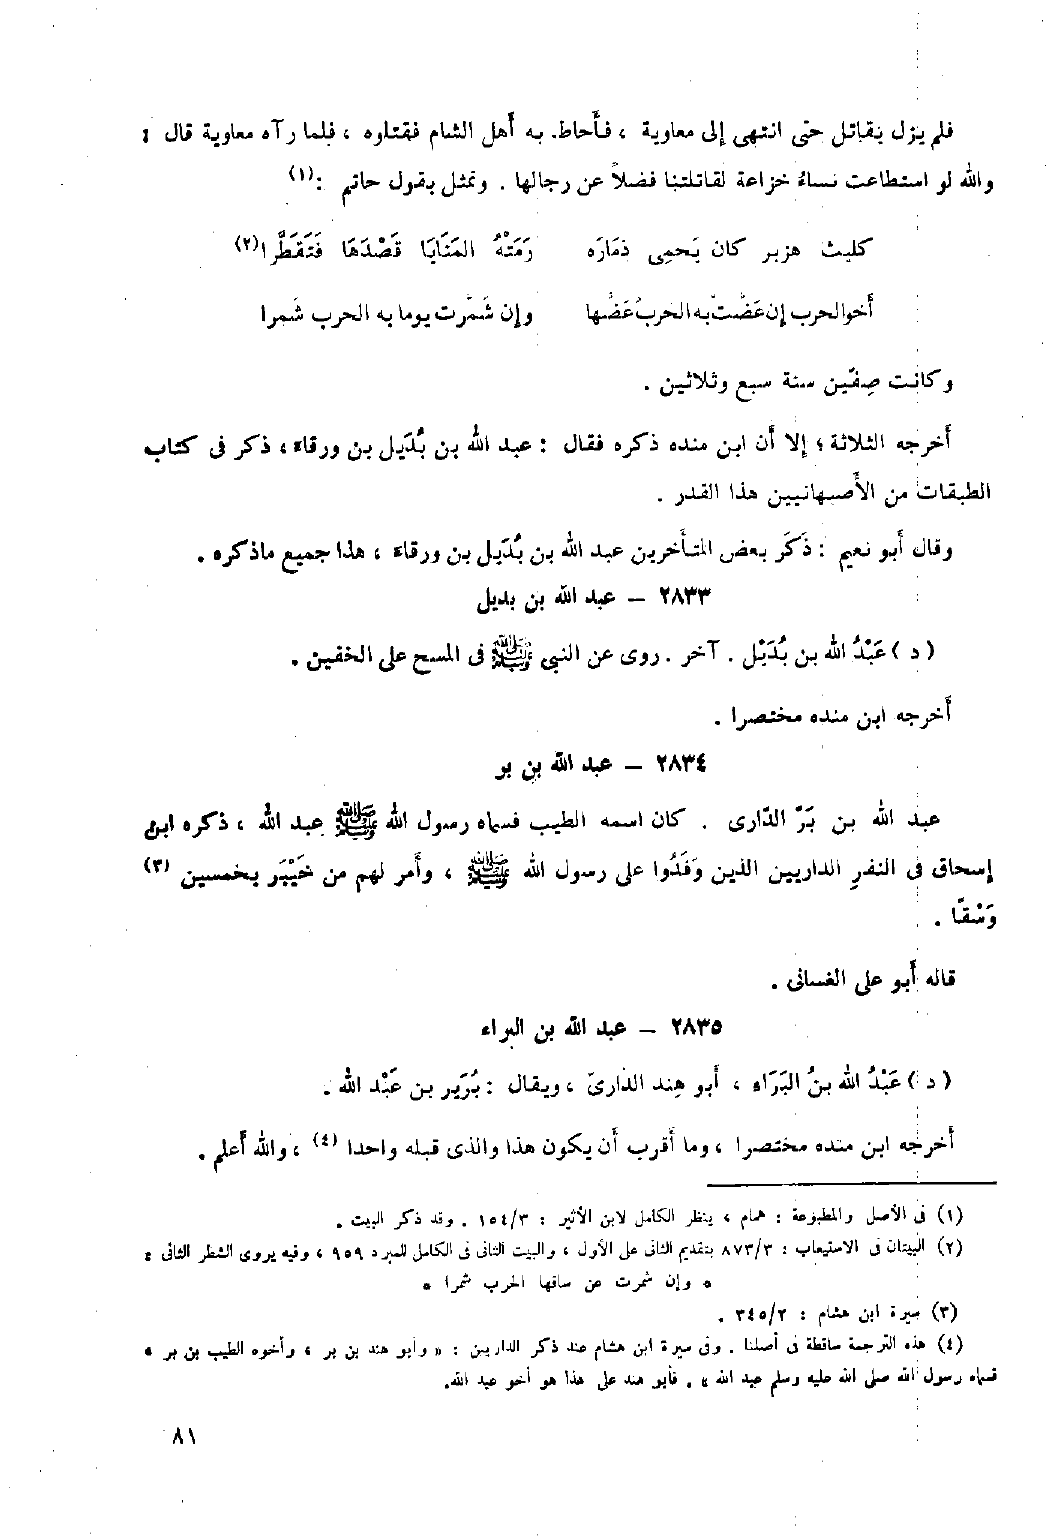 فلم يزل يقاتل حتى انتهى إلى معاوية ، فأَحاط. به أَهل الشام فقتلوه ، فلما رآه معاوية قال :
والله لو استطاعت نساءُ خزاعة لقاتلتنا فضلاً عن رجالها . وتمثل بقول حاتم :(١)
كليث هزبر كان يَحمِى ذمَارَه رَمَتْهُ المَنَايَا قَصْدَهَا فَتَقَطَّرا(٢)
أَخوالحرب إن عَضَّت به الحربُ عَضَّها وإن شَمَّرت يوما به الحرب شَمرا
وكانت صِفّين سنة سبع وثلاثين .
أَخرجه الثلاثة ؛ إلا أَن ابن منده ذكره فقال : عبد الله بن بُدَيل بن ورقاء ، ذكر فى كتاب
الطبقات من الأَصبهانيين هذا القدر .
وقال أَبو نعيم : ذَكَر بعض المتأَخرين عبد الله بن بُدَيل بن ورقاء ، هذا جميع ماذكره .
٢٨٣٣ – عبد الله بن بديل
( د ) عَبْدُ الله بن بُدَيْل . آخر . روى عن النبي ﷺ فى المسح على الخفين .
أَخرجه ابن منده مختصرا .
٢٨٣٤ – عبد الله بن بر
عبد الله بن بَرّ الدّارى . كان اسمه الطيب فسماه رسول الله ﷺ عبد الله ، ذكره ابن
إسحاق فى النفرِ الداريين الذين وَفَدُوا على رسول الله ﷺ ، وأَمر لهم من خَيْبَر بخمسين (٣)
وَسْقًا .
قاله أَبو على الغسانى .
٢٨٣٥ – عبد الله بن البراء
( د ) عَبْدُ الله بنُ البَرَاء ، أَبو هِند الدارىّ ، ويقال : بُرَير بن عَبْد الله .
أَخرجه ابن منده مختصرا ، وما أَقرب أَن يكون هذا والذى قبله واحدا (٤) ، والله أَعلم .
(١) فى الأصل والمطبوعة : همام ، ينظر الكامل لابن الأثير : ١٥٤/٣ . وقد ذكر البيت .
(٢) البيتان فى الاستيعاب : ٨٧٣/٣ بتقديم الثانى على الأول ، والبيت الثانى فى الكامل للمبرد ٩٥٩ ، وفيه يروى الشطر الثانى :
* وإن شمرت عن ساقها الحرب شمرا *
(٣) سيرة ابن هشام : ٣٤٥/٢ .
(٤) هذه الترجمة ساقطة فى أصلنا . وفى سيرة ابن هشام عند ذكر الداريين : « وأبو هند بن بر ، وأخوه الطيب بن بر ،
فسماه رسول الله صلى الله عليه وسلم عبد الله » . فأبو هند على هذا هو أخو عبد الله.
٨١